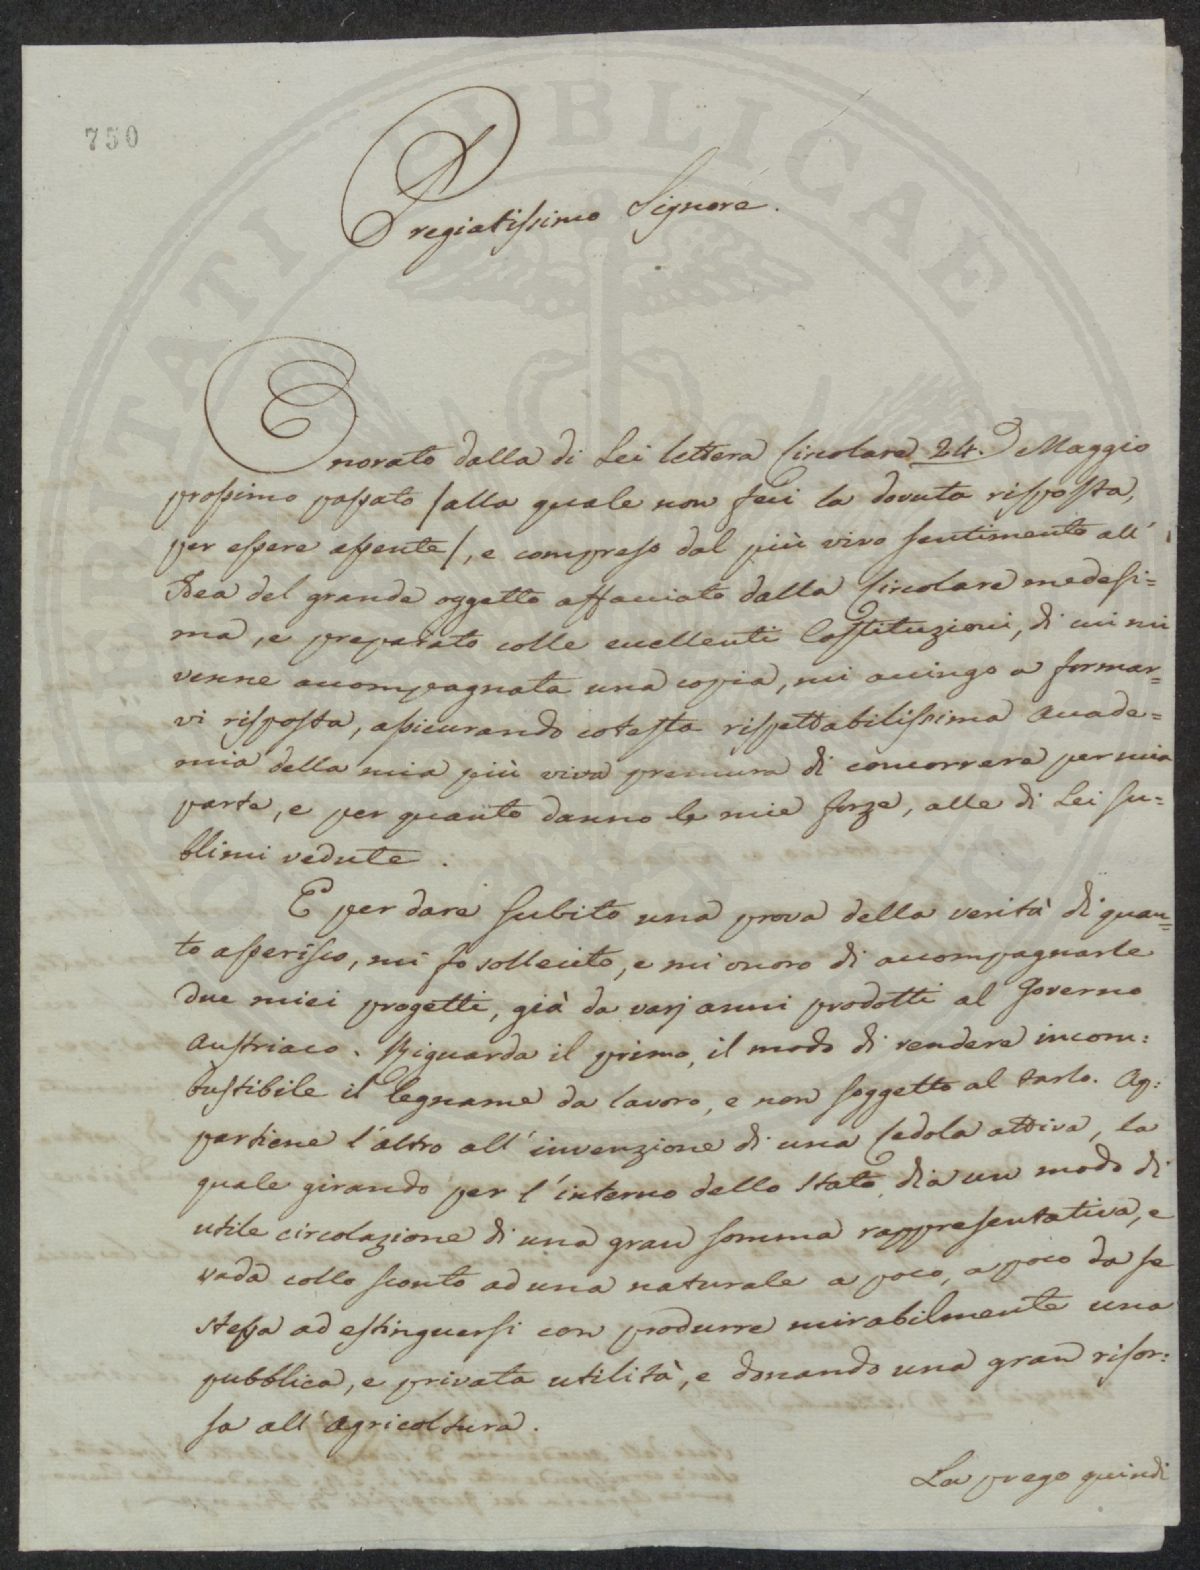 750
Pregiatissimo Signore.
Onorato dalla di Lei lettera Circolare 24. Maggio
prossimo passato /alla quale non feci la dovuta risposta,
per essere assente/, e compreso dal più vivo sentimento all'
Idea del grande oggetto affacciato dalla Circolare medesi=
ma, e preparato colle eccellenti Costituzioni, di cui mi
venne accompagnata una copia, mi accingo a formar=
vi risposta, assicurando cotesta rispettabilissima Accade=
mia della mia più viva premura di concorrere per mia
parte, e per quanto danno le mie forze, alle di Lei su=
blimi vedute.
E per dare subito una prova della verità di quan=
to asserisco, mi fo sollecito, e mi onoro di accompagnarle
due miei progetti, già da varj anni prodotti al Governo
Austriaco. Riguarda il primo, il modo di rendere incom:
bustibile il legname da lavoro, e non soggetto al tarlo. Ap:
partiene l'altro all'invenzione di una Cedola attiva, la
quale girando per l'interno dello Stato, dia un modo di
utile circolazione di una gran somma rappresentativa, e
vada collo sconto ad una naturale a poco, a poco da se
stessa ad estinguersi con produrre mirabilmente una
pubblica, e privata utilità, e donando una gran risor:
sa all'Agricoltura.
La prego quindi
PUBLICAE